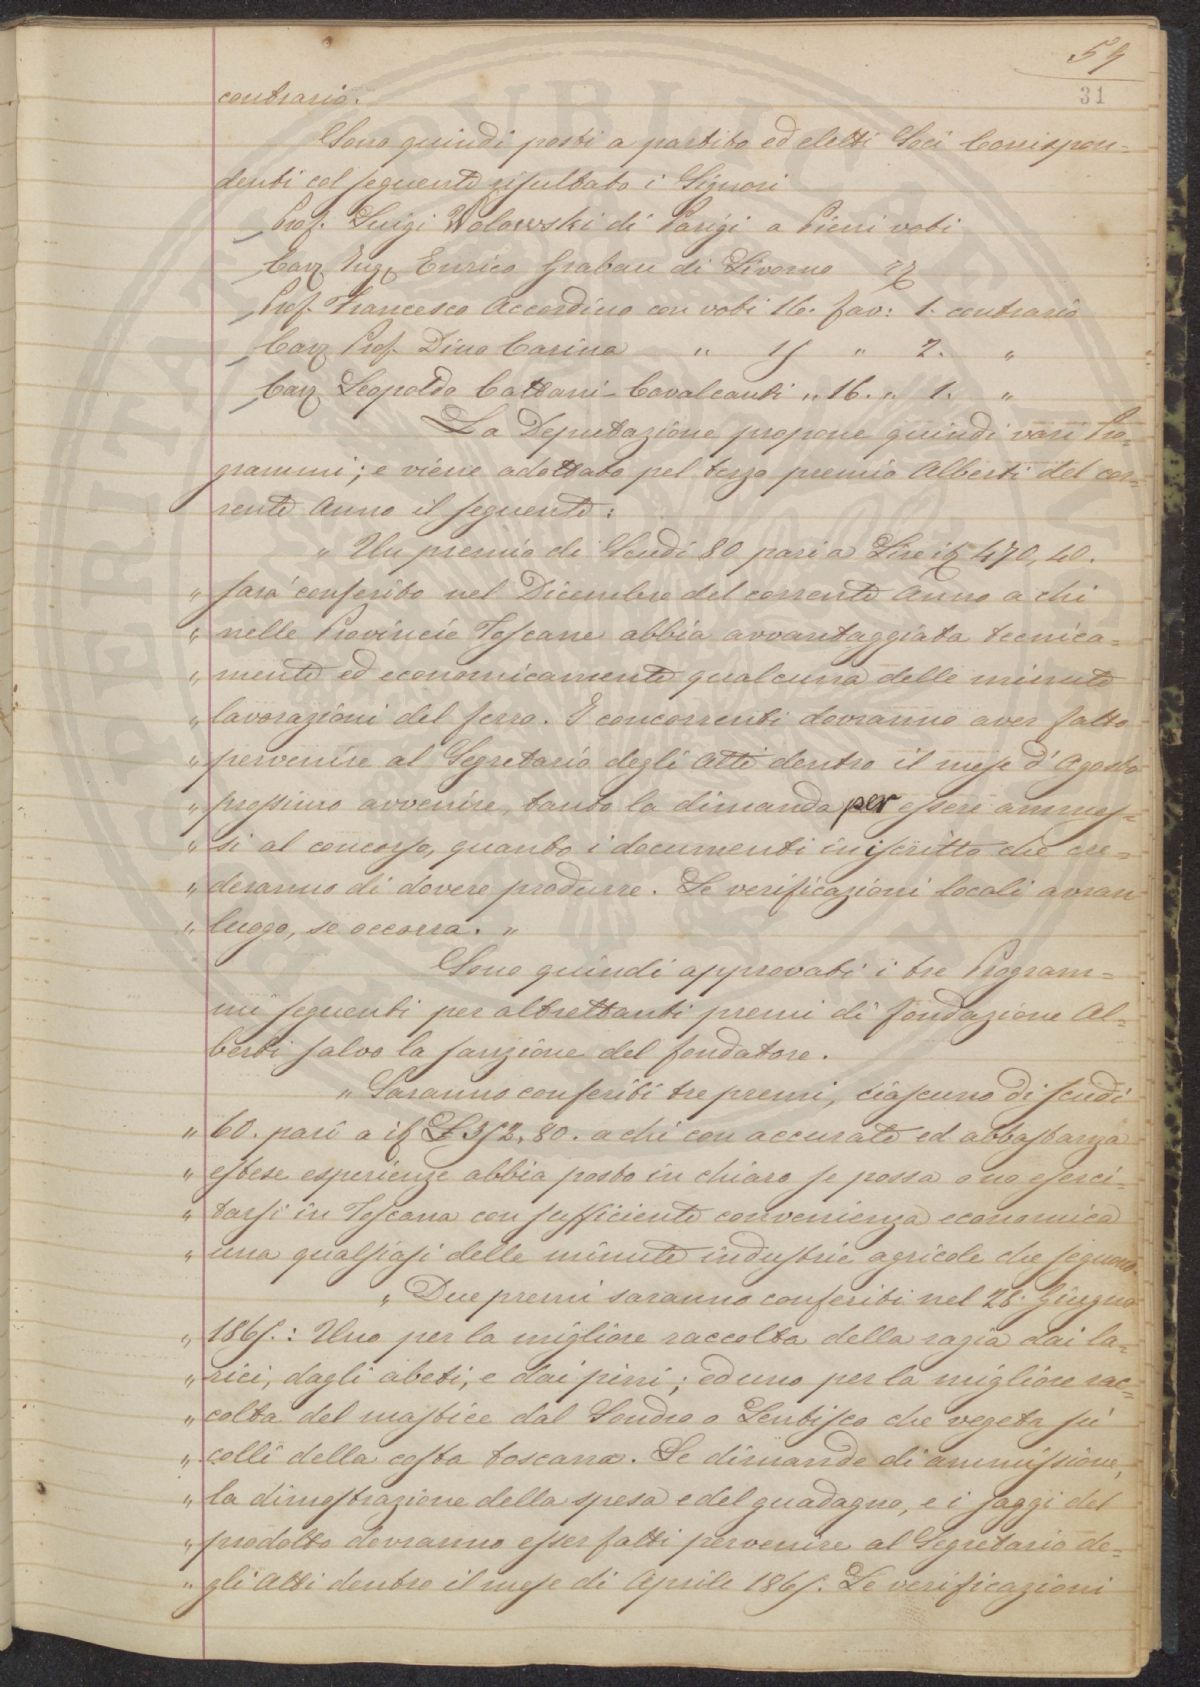 59
31
contrario.
Sono quindi posti a partito ed eletti Soci Corrispon=
denti col seguente risultato i Signori
Prof. Luigi Wolowski di Parigi a Pieni voti
Cav. Ing. Enrico Grabau di Livorno
Prof. Francesco Accordino con voti 16. fav: 1. contrario
Cav. Prof. Dino Carina " 15 " 2. "
Cav. Leopoldo Cattani-Cavalcanti " 16. " 1. "
La Deputazione propone quindi vari Pro=
grammi; e viene adottato pel terzo premio Alberti del cor=
rente Anno il seguente:
" Un premio di Scudi 80 pari a Lire it. 470,40.
" sarà conferito nel Dicembre del corrente Anno a chi
" nelle Provincie Toscane abbia avvantaggiata tecnica=
" mente ed economicamente qualcuna delle minute
" lavorazioni del ferro. I concorrenti dovranno aver fatto
" pervenire al Segretario degli Atti dentro il mese d'Agosto
" prossimo avvenire, tanto la dimanda per essere ammes=
" si al concorso, quanto i documenti in iscritto che cre=
" deranno di dovere produrre. Le verificazioni locali avran
" luogo, se occorra. "
Sono quindi approvati i tre Program=
mi seguenti per altrettanti premi di fondazione Al=
berti salvo la sanzione del fondatore.
" Saranno conferiti tre premi, ciascuno di scudi
" 60. pari a it. £ 352,80. a chi con accurate ed abbastanza
" estese esperienze abbia posto in chiaro se possa o no eserci=
" tarsi in Toscana con sufficiente convenienza economica
" una qualsiasi delle minute industrie agricole che seguono.
" Due premi saranno conferiti nel 28. Giugno
" 1865.: Uno per la migliore raccolta della ragia dai la=
" rici, dagli abeti, e dai pini; ed uno per la migliore rac=
" colta del mastice dal Sondro o Lentisco che vegeta sù
" colli della costa toscana. Le dimande di ammissione,
" la dimostrazione della spesa e del guadagno, e i saggi del
" prodotto dovranno esser fatti pervenire al Segretario de=
" gli Atti dentro il mese di Aprile 1865. Le verificazioni